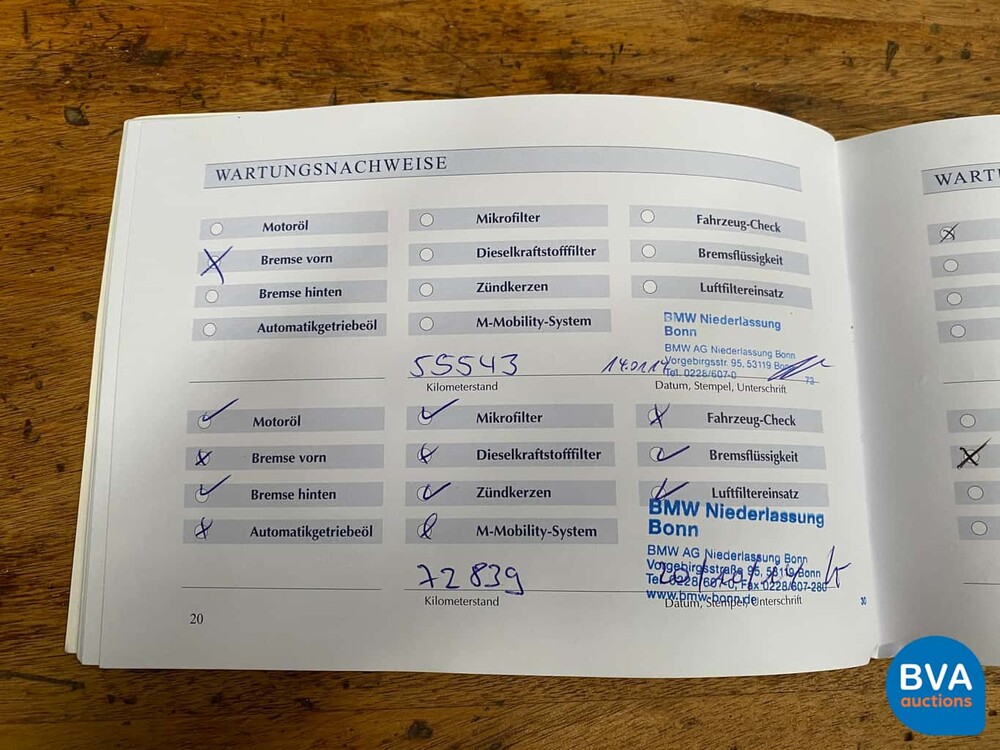 WARTUNGSNACHWEISE
Motoröl
Mikrofilter
Fahrzeug-Check
Bremse vorn
Dieselkraftstofffilter
Bremsflüssigkeit
Bremse hinten
Zündkerzen
Luftfiltereinsatz
Automatikgetriebeöl
M-Mobility-System
BMW Niederlassung
Bonn
BMW AG Niederlassung Bonn
Vorgebirgsstr. 95, 53119 Bonn
Tel. 0228/607-0
73
55543
Kilometerstand
Datum, Stempel, Unterschrift
Motoröl
Mikrofilter
Fahrzeug-Check
Bremse vorn
Dieselkraftstofffilter
Bremsflüssigkeit
Bremse hinten
Zündkerzen
Luftfiltereinsatz
Automatikgetriebeöl
M-Mobility-System
BMW Niederlassung
Bonn
BMW AG Niederlassung Bonn
Vorgebirgsstraße 95, 53119 Bonn
Tel. 0228/607-0, Fax 0228/607-280
www.bmw-bonn.de
72839
Kilometerstand
Datum, Stempel, Unterschrift
30
20
WART
BVA
auctions